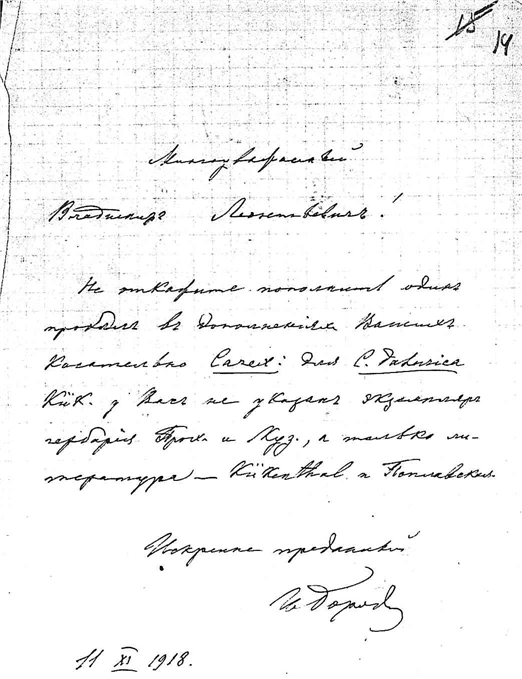 15
14
Многоуважаемый
Владимиръ Леонтьевичъ!
Не откажите пополнить одинъ
пробѣлъ въ дополненіяхъ Вашихъ
касательно Carex: для C. dahurica
Kük. у Васъ не указанъ экземпляръ
гербарія Прох. и Куз., а только ли-
тература — Kükenthal и Поплавская.
Искренне преданный
И Бород
11 XI 1918.